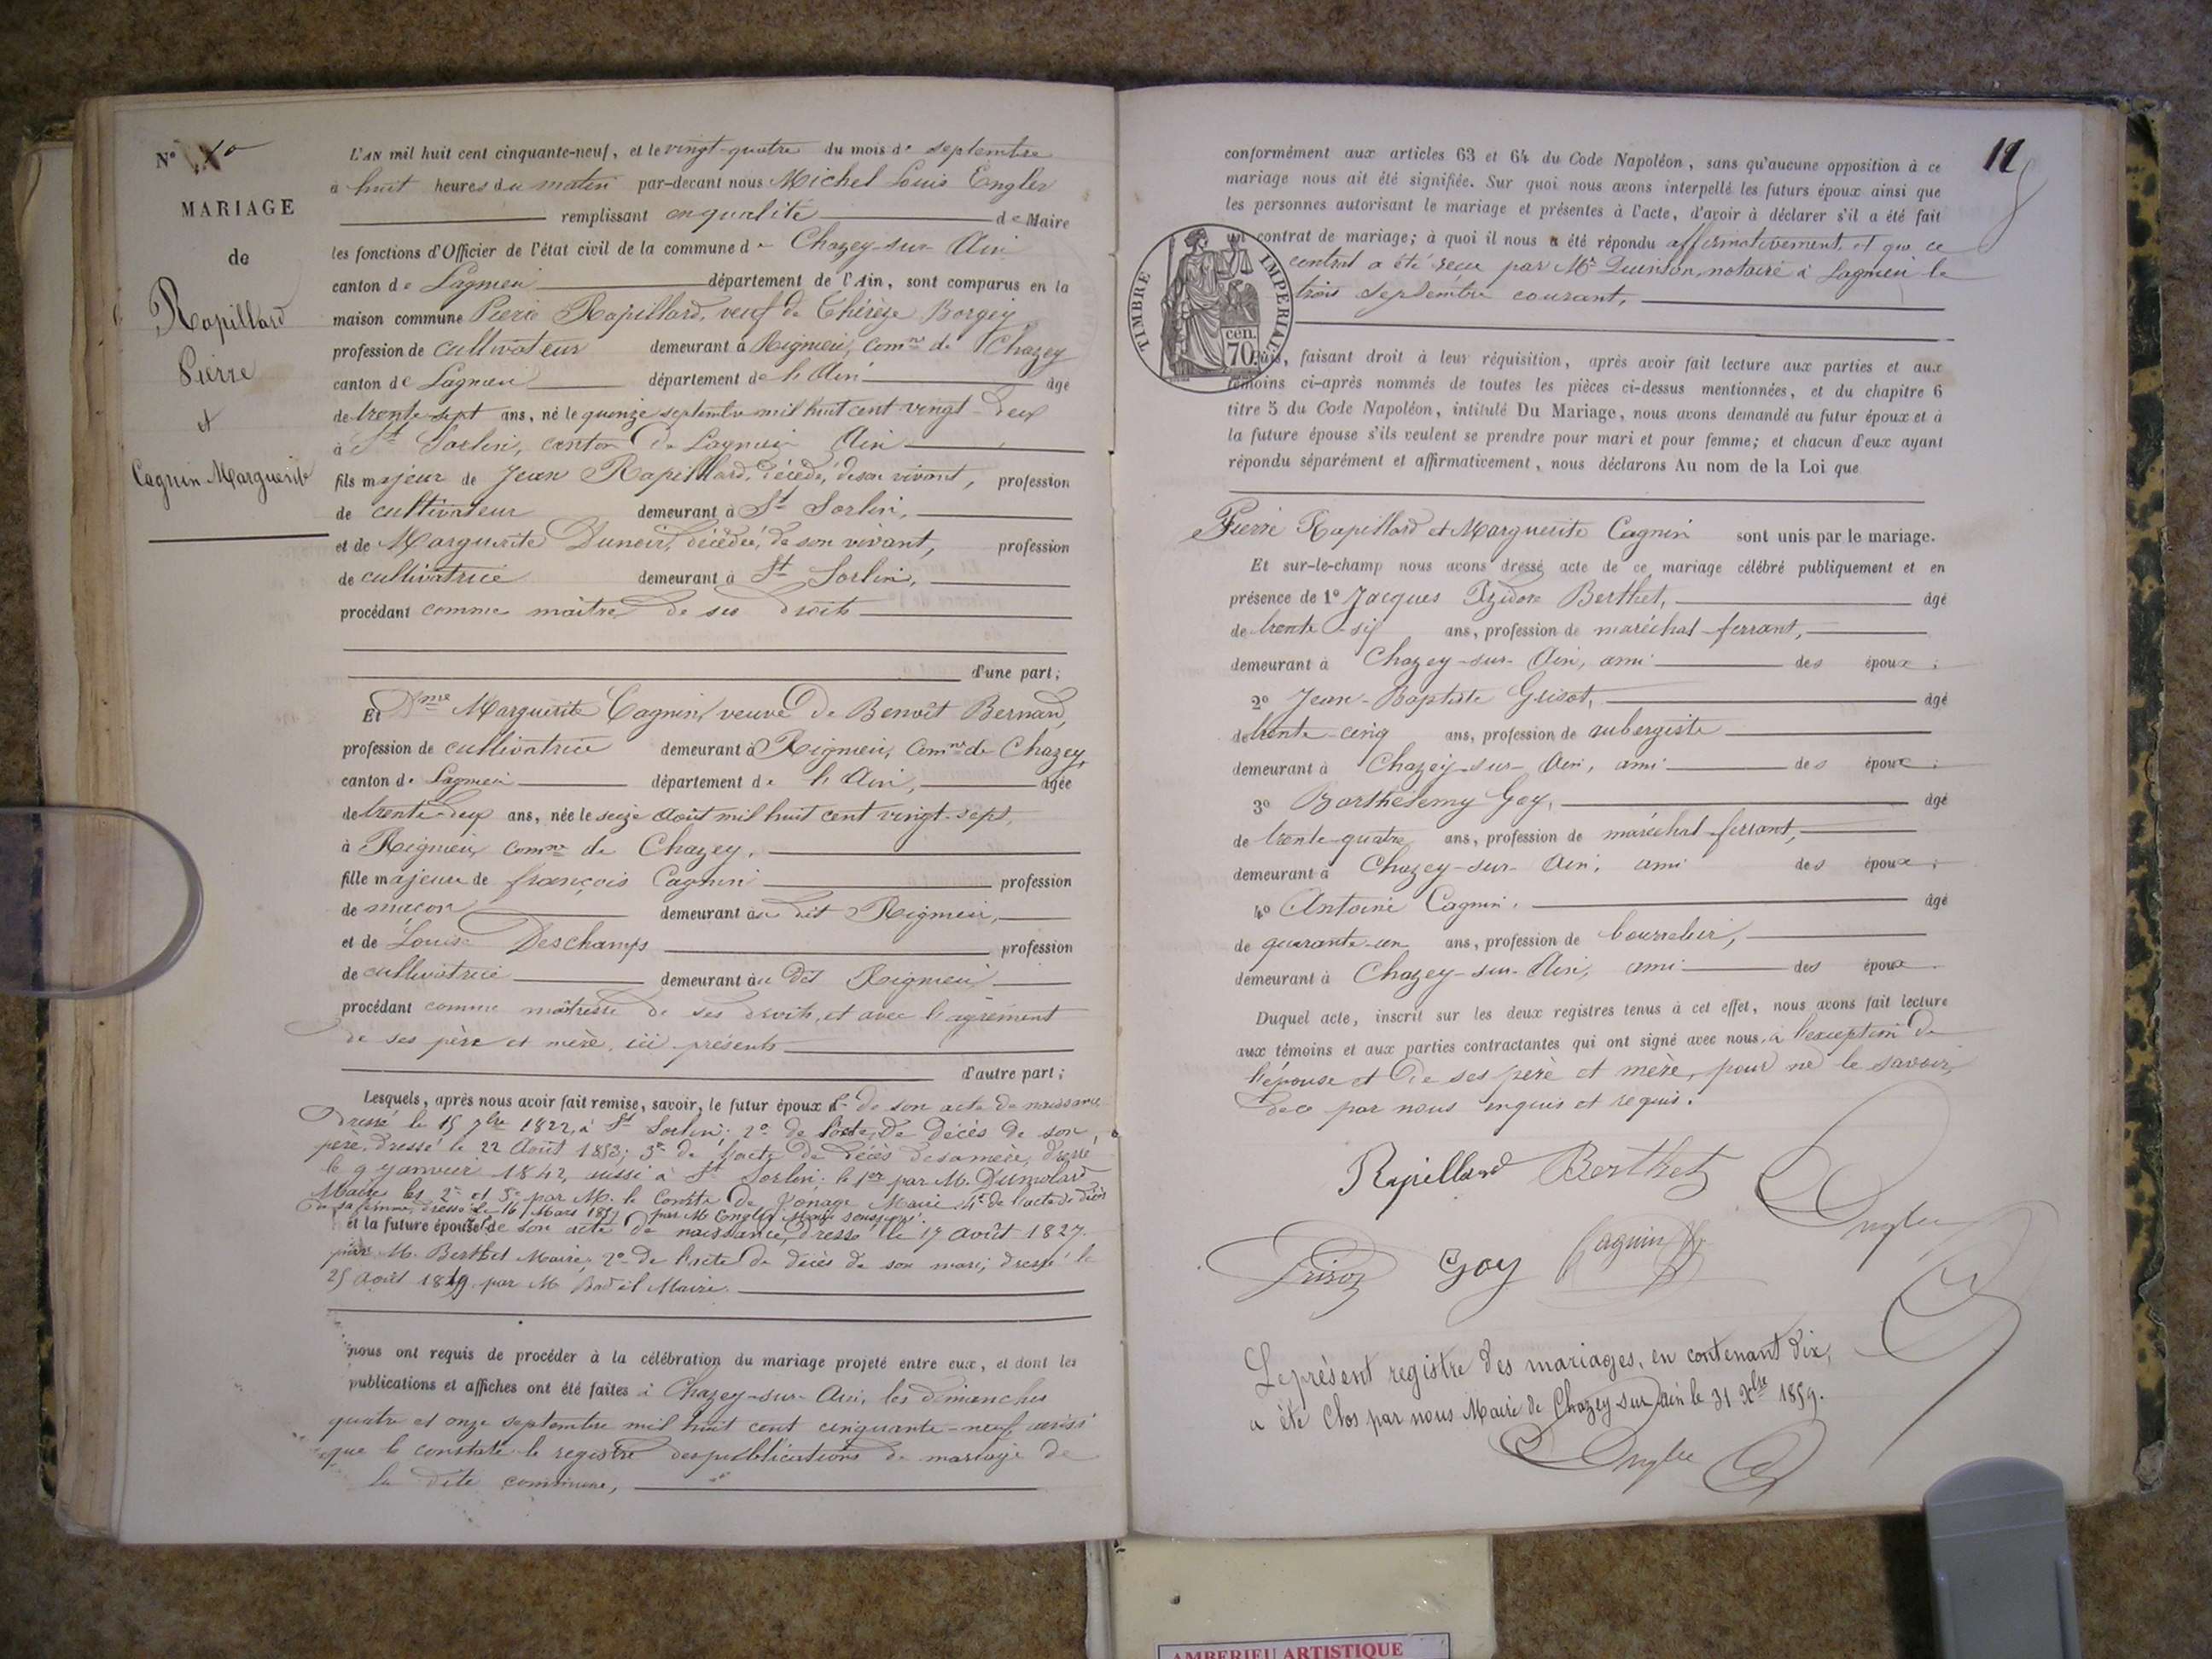 N° 10
MARIAGE
de
Rapillard
Pierre
et
Cagnin Marguerite
L'AN mil huit cent cinquante-neuf, et le vingt-quatre du mois de septembre
à huit heures du matin par-devant nous Michel Louis Engler
remplissant en qualité de Maire
les fonctions d'Officier de l'état civil de la commune de Chazey-sur-Ain
canton de Lagnieu département de l'Ain, sont comparus en la
maison commune Pierre Rapillard, veuf de Thérèse Borgey
profession de cultivateur demeurant à Rignieu, comne de Chazey
canton de Lagnieu département de l'Ain âgé
de trente-sept ans, né le quinze septembre mil huit cent vingt-deux
à St Sorlin, canton de Lagnieu Ain
fils majeur de Jean Rapillard, décédé, de son vivant, profession
de cultivateur demeurant à St Sorlin,
et de Marguerite Dunoir, décédée, de son vivant, profession
de cultivatrice demeurant à St Sorlin,
procédant comme maître de ses droits
d'une part;
Et Dme Marguerite Cagnin, veuve de Benoît Bernard,
profession de cultivatrice demeurant à Rignieu, comne de Chazey,
canton de Lagnieu département de l'Ain, âgée
de trente-deux ans, née le seize août mil huit cent vingt-sept,
à Rignieu, comne de Chazey,
fille majeure de françois Cagnin profession
de maçon demeurant au dit Rignieu,
et de Louise Deschamps profession
de cultivatrice demeurant au dit Rignieu
procédant comme maîtresse de ses droits, et avec l'agrément
de ses père et mère, ici présents
d'autre part;
Lesquels, après nous avoir fait remise, savoir, le futur époux 1° de son acte de naissance
dressé le 15 7bre 1822, à St Sorlin; 2° de l'acte de décès de son
père, dressé le 22 Août 1853; 3° de l'acte de décès de sa mère, dressé
le 9 janvier 1842, aussi à St Sorlin; le 1er par M. Dumolard
Maire, les 2e et 3e par M. le Comte de Maire 4° de l'acte de décès
de sa femme, dressé le 16 Mars 1857 par M. Engler Maire soussigné.
et la future épouse 1° de son acte de naissance, dressé le 17 août 1827.
par M. Berthet Maire; 2° de l'acte de décès de son mari, dressé le
25 Août 1849 par M. Maire.
nous ont requis de procéder à la célébration du mariage projeté entre eux, et dont les
publications et affiches ont été faites à Chazey-sur-Ain, les dimanches
quatre et onze septembre mil huit cent cinquante-neuf, ainsi
que le constate le registre des publications de mariage de
la dite commune,
12
conformément aux articles 63 et 64 du Code Napoléon, sans qu'aucune opposition à ce
mariage nous ait été signifiée. Sur quoi nous avons interpellé les futurs époux ainsi que
les personnes autorisant le mariage et présentes à l'acte, d'avoir à déclarer s'il a été fait
un contrat de mariage; à quoi il nous a été répondu affirmativement, et que ce
contrat a été reçu par Me Quinson, notaire à Lagnieu le
trois septembre courant,
TIMBRE IMPERIAL
70 cen.
Puis, faisant droit à leur réquisition, après avoir fait lecture aux parties et aux
témoins ci-après nommés de toutes les pièces ci-dessus mentionnées, et du chapitre 6
titre 5 du Code Napoléon, intitulé Du Mariage, nous avons demandé au futur époux et à
la future épouse s'ils veulent se prendre pour mari et pour femme; et chacun d'eux ayant
répondu séparément et affirmativement, nous déclarons Au nom de la Loi que
Pierre Rapillard et Marguerite Cagnin sont unis par le mariage.
Et sur-le-champ nous avons dressé acte de ce mariage célébré publiquement et en
présence de 1° Jacques Izidore Berthet, âgé
de trente-six ans, profession de maréchal-ferrant,
demeurant à Chazey-sur-Ain, ami des époux;
2° Jean-Baptiste Grisot, âgé
de trente-cinq ans, profession de aubergiste
demeurant à Chazey-sur-Ain, ami des époux;
3° Barthélemy Goy, âgé
de trente-quatre ans, profession de maréchal-ferrant,
demeurant à Chazey-sur-Ain, ami des époux;
4° Antoine Cagnin, âgé
de quarante-un ans, profession de bourrelier,
demeurant à Chazey-sur-Ain, ami des époux.
Duquel acte, inscrit sur les deux registres tenus à cet effet, nous avons fait lecture
aux témoins et aux parties contractantes qui ont signé avec nous, à l'exception de
l'épouse et de ses père et mère, pour ne le savoir,
de ce par nous enquis et requis.
Rapillard Berthet
Engler
Goy Cagnin
Le présent registre des mariages, en contenant dix,
a été clos par nous Maire de Chazey-sur-Ain le 31 Xbre 1859.
Engler
AMBERIEU ARTISTIQUE